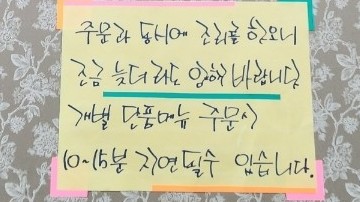 주문과 동시에 조리를 하오니
조금 늦더라도 양해 바랍니다
개별 단품메뉴 주문시
10~15분 지연될수 있습니다.